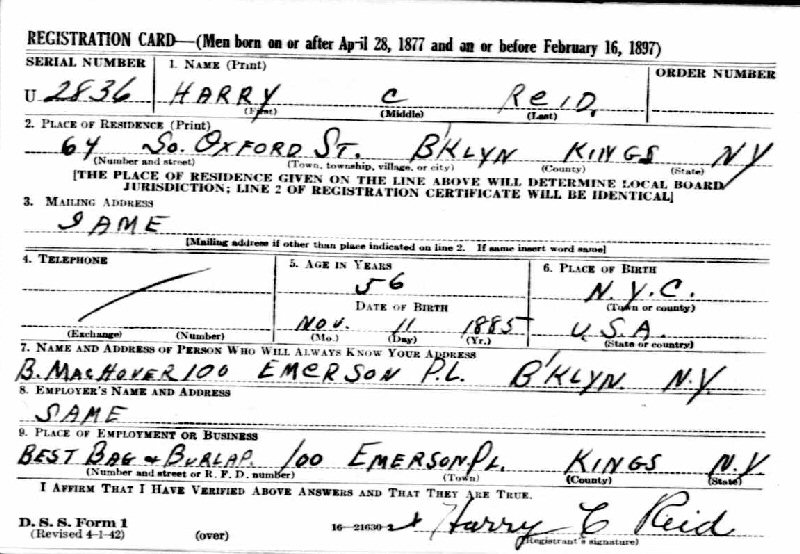 REGISTRATION CARD—(Men born on or after April 28, 1877 and on or before February 16, 1897)
SERIAL NUMBER 1. NAME (Print) ORDER NUMBER
U 2836 HARRY C REID.
(First) (Middle) (Last)
2. PLACE OF RESIDENCE (Print)
64 SO. OXFORD ST. B'KLYN KINGS NY
(Number and street) (Town, township, village, or city) (County) (State)
[THE PLACE OF RESIDENCE GIVEN ON THE LINE ABOVE WILL DETERMINE LOCAL BOARD
JURISDICTION; LINE 2 OF REGISTRATION CERTIFICATE WILL BE IDENTICAL]
3. MAILING ADDRESS
SAME
[Mailing address if other than place indicated on line 2. If same insert word same]
4. TELEPHONE 5. AGE IN YEARS 6. PLACE OF BIRTH
56 N.Y.C.
DATE OF BIRTH (Town or county)
Nov. 11 1885 U.S.A.
(Exchange) (Number) (Mo.) (Day) (Yr.) (State or country)
7. NAME AND ADDRESS OF PERSON WHO WILL ALWAYS KNOW YOUR ADDRESS
B. MACHOVER 100 EMERSON PL. B'KLYN. N.Y.
8. EMPLOYER'S NAME AND ADDRESS
SAME
9. PLACE OF EMPLOYMENT OR BUSINESS
BEST BAG & BURLAP. 100 EMERSON PL. KINGS N.Y.
(Number and street or R. F. D. number) (Town) (County) (State)
I AFFIRM THAT I HAVE VERIFIED ABOVE ANSWERS AND THAT THEY ARE TRUE.
D. S. S. Form 1
(Revised 4-1-42) (over) 16—21630-2 Harry C Reid
(Registrant's signature)